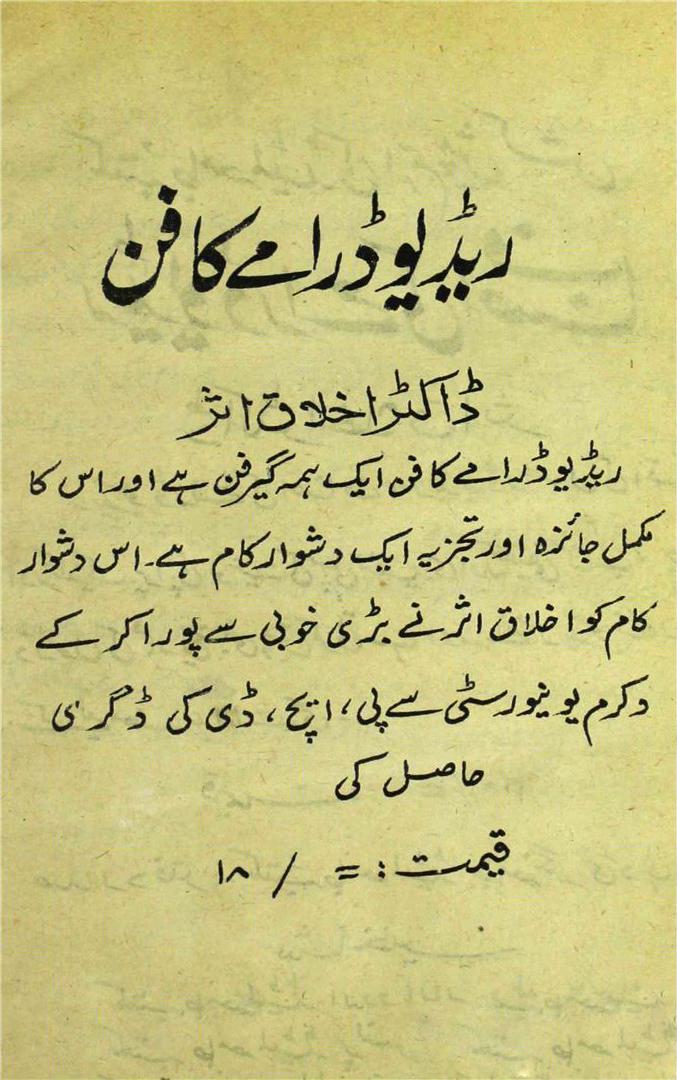 ریڈیو ڈرامے کا فن
ڈاکٹر اخلاق اثر
ریڈیو ڈرامے کا فن ایک ہمہ گیر فن ہے اور اس کا
مکمل جائزہ اور تجزیہ ایک دشوار کام ہے۔ اس دشوار
کام کو اخلاق اثر نے بڑی خوبی سے پورا کر کے
وکرم یونیورسٹی سے پی، ایچ، ڈی کی ڈگری
حاصل کی
قیمت : = / ۱۸